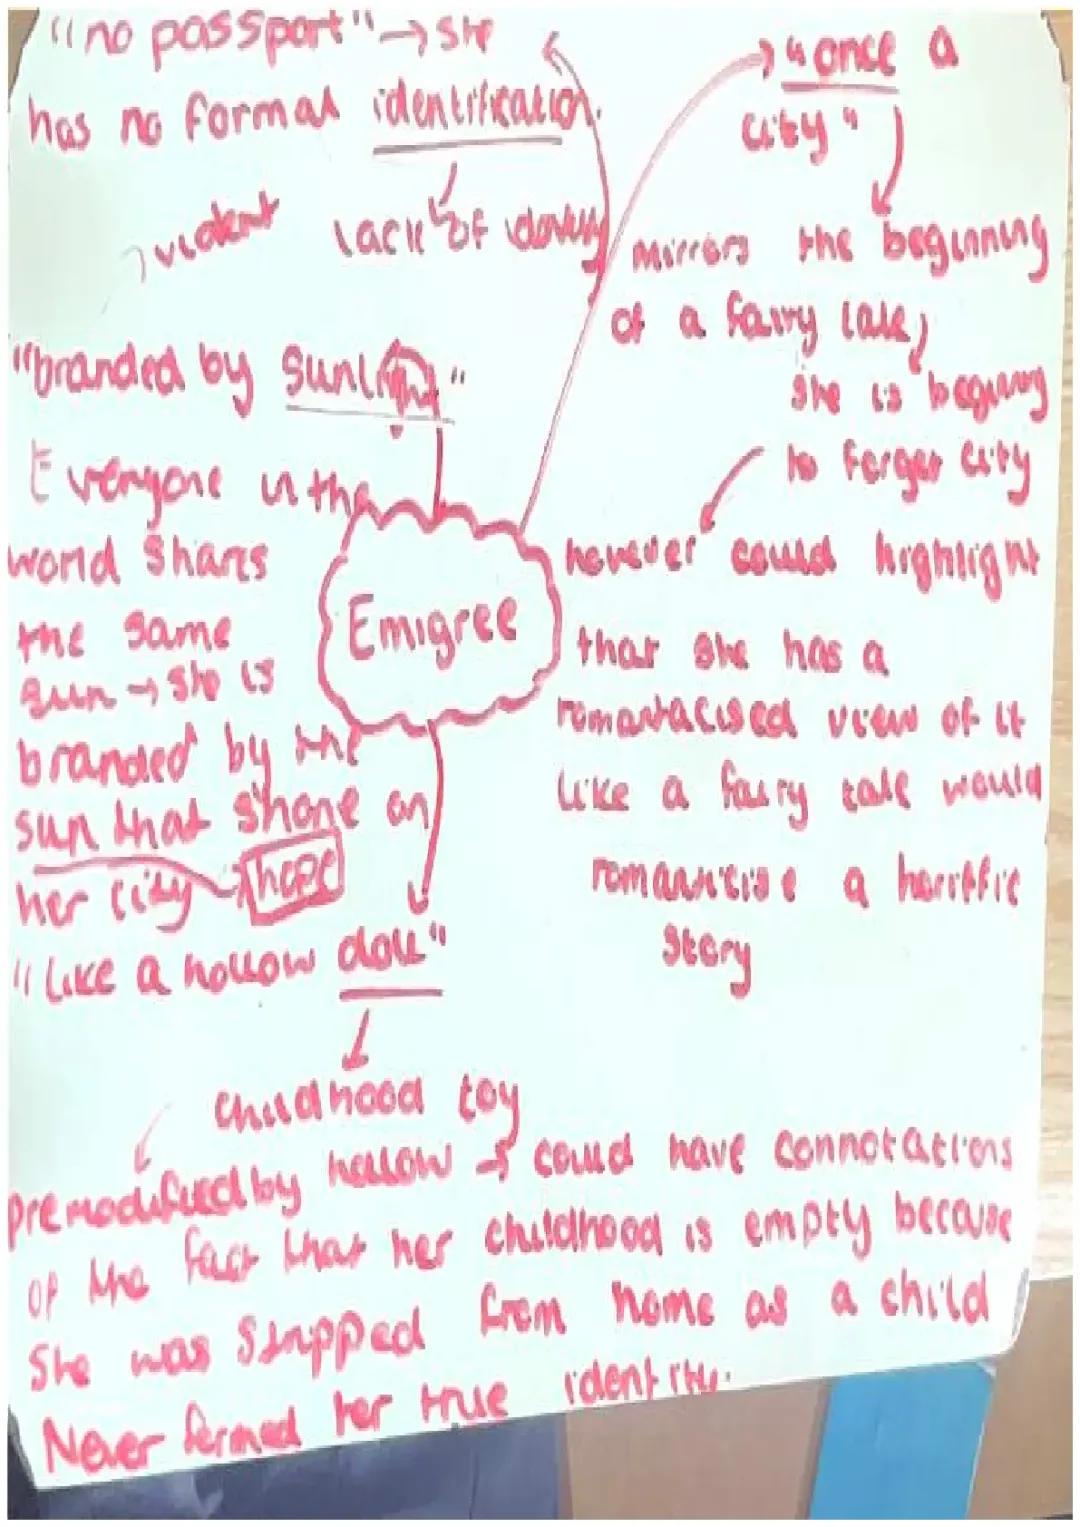 "no passport" → she
has no formal identification.
lack of identity
violent
"branded by sunlight"
Everyone in the
world shares
the same
sun → she is
branded by the
sun that shone on
her city hope
"like a hollow doll"
childhood toy
premodified by hollow → could have connotations
of the fact that her childhood is empty because
she was stripped from home as a child
Never formed her true identity.
Emigree
"once a
city"
mirrors the beginning
of a fairy tale,
she is begining
to forget city
however could highlight
that she has a
romantacised view of it
like a fairy tale would
romanticise a horiffic
story